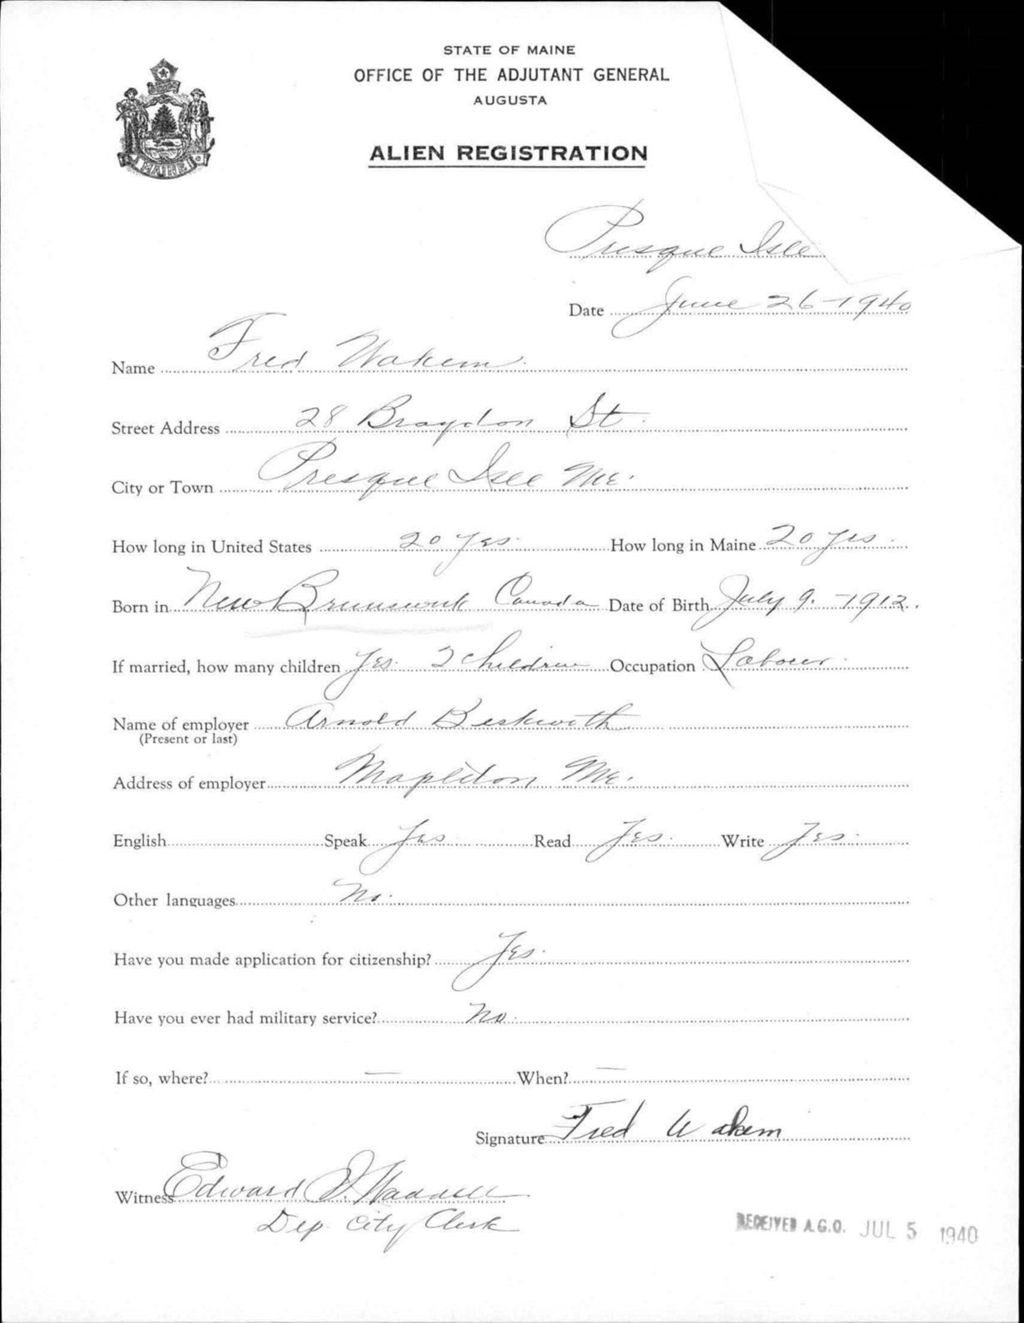 STATE OF MAINE
OFFICE OF THE ADJUTANT GENERAL
AUGUSTA
ALIEN REGISTRATION
MAINE
Presque Isle
Date June 26-1940
Name Fred Wakem
Street Address 28 Braydon St.
City or Town Presque Isle Me.
How long in United States 20 yrs. How long in Maine 20 yrs.
Born in New Brunswick Canada Date of Birth July 9.-1912.
If married, how many children Yes. 2 children Occupation Labour.
Name of employer Arnold Beckwith
(Present or last)
Address of employer Mapleton Me.
English Speak Yes Read Yes. Write Yes.
Other languages No.
Have you made application for citizenship? Yes.
Have you ever had military service? No.
If so, where? — When? —
Signature Fred Wakem
Witness Edward
Dep. City Clerk
RECEIVED A.G.O. JUL 5 1940